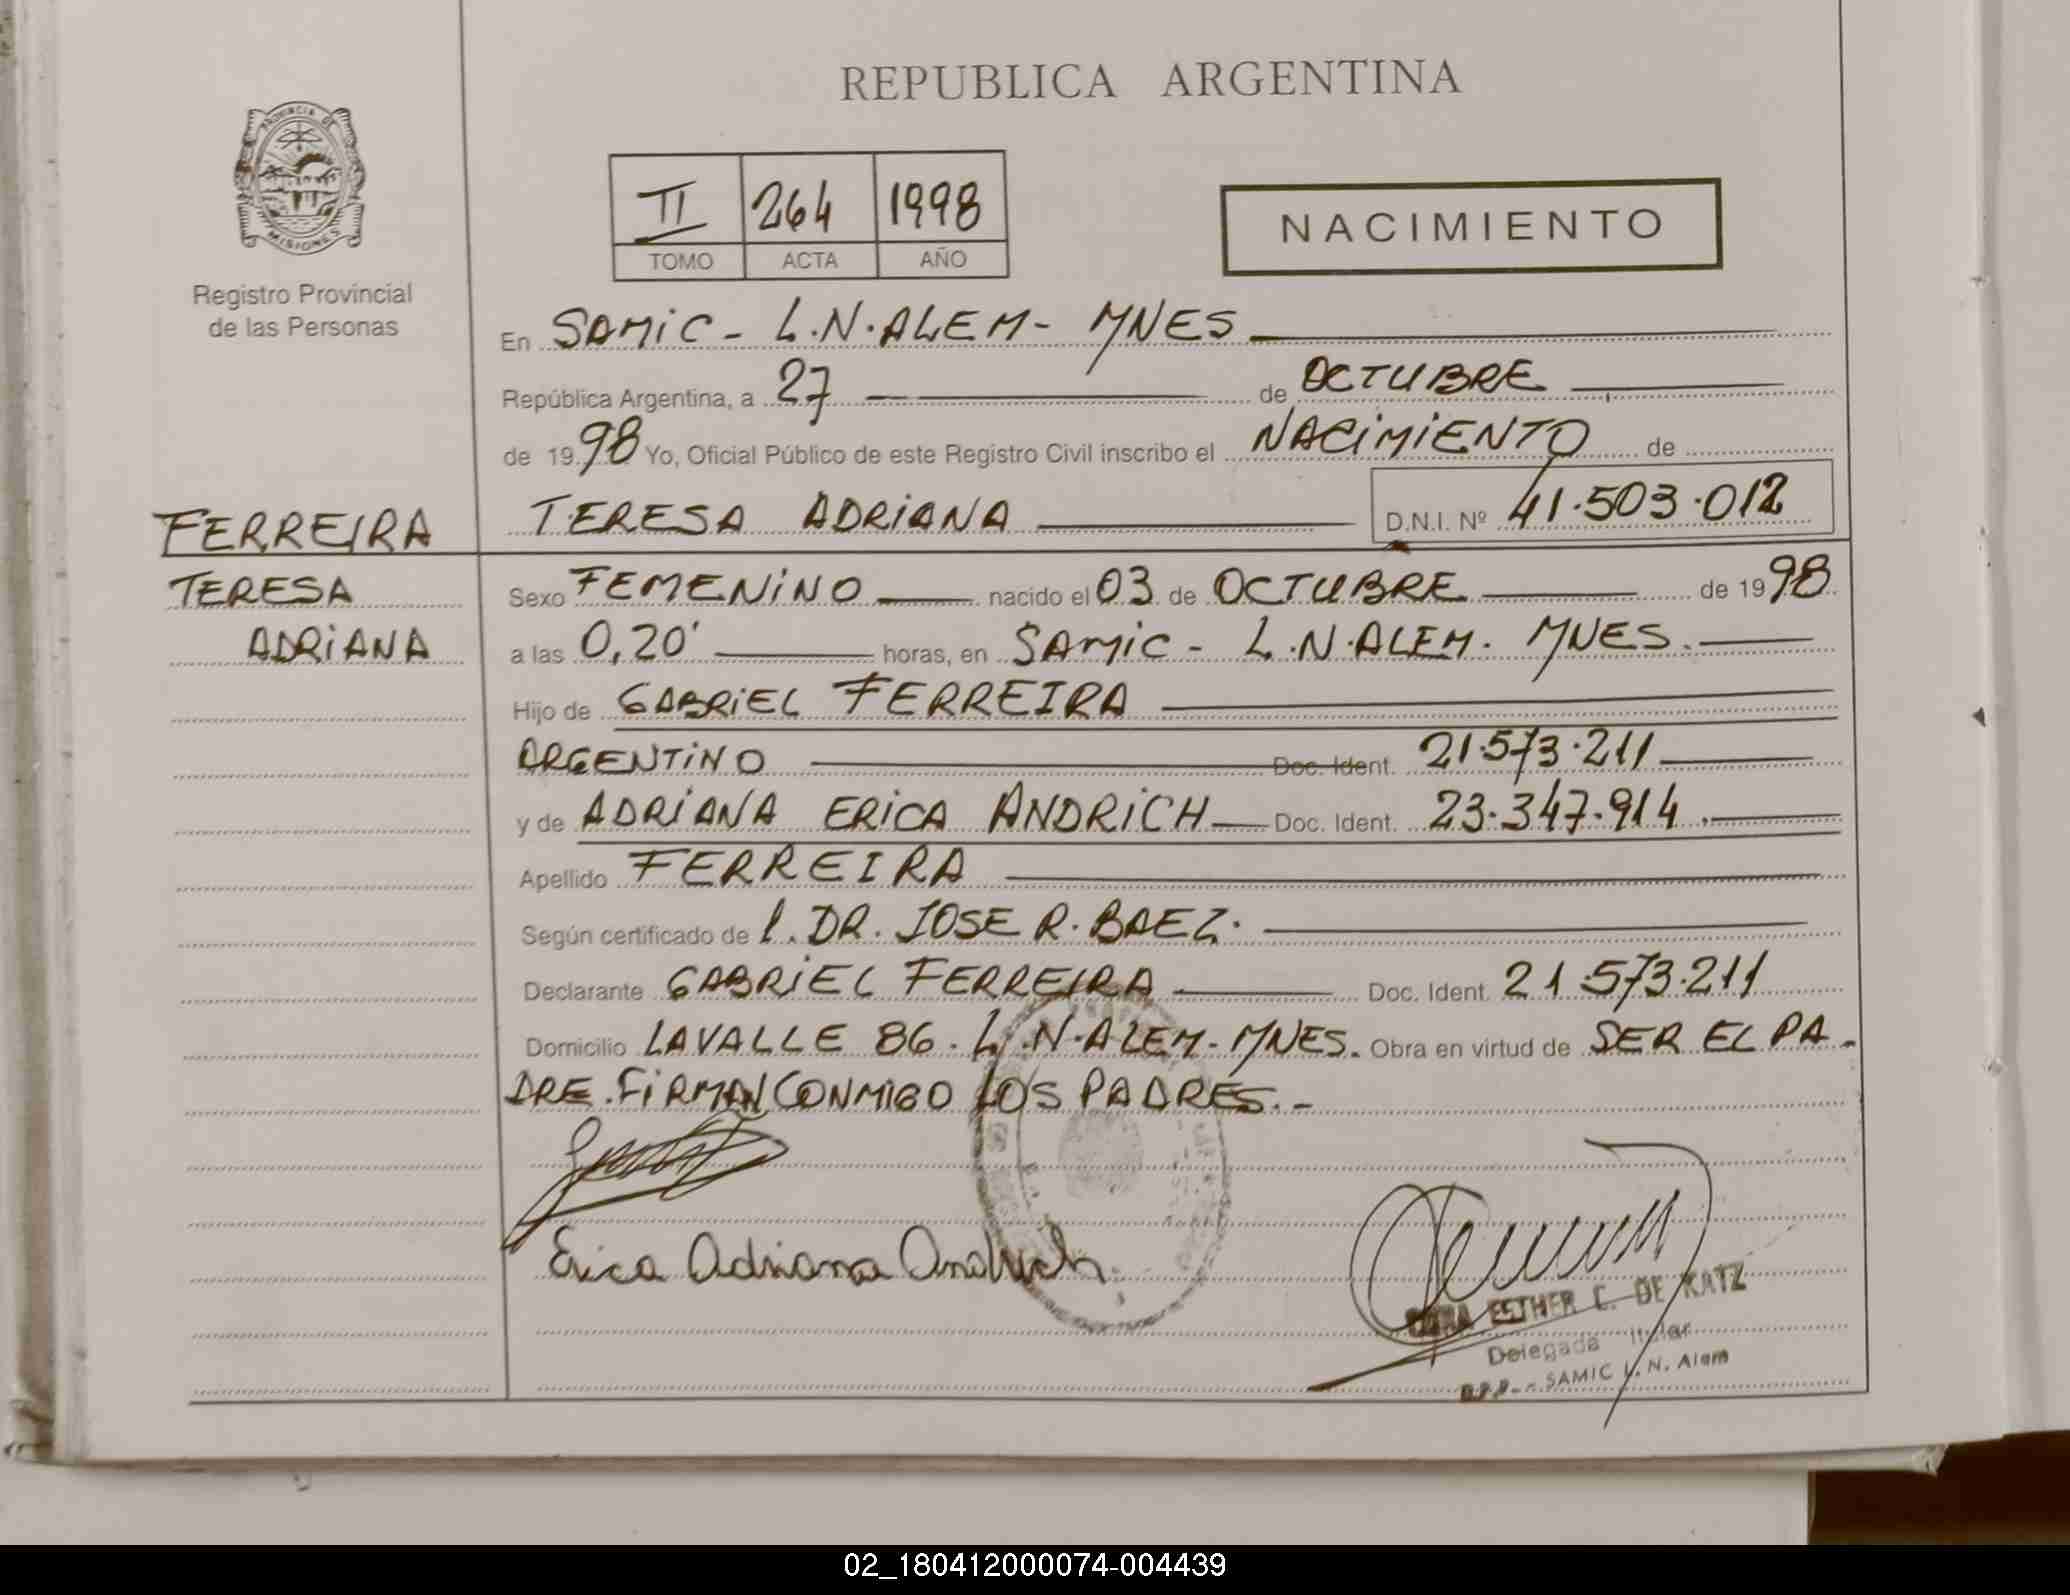 REPUBLICA ARGENTINA
PROVINCIA DE
MISIONES
Registro Provincial
de las Personas
II 264 1998
TOMO ACTA AÑO
NACIMIENTO
En SAMIC - L.N.ALEM - MNES
República Argentina, a 27 de OCTUBRE
de 1998 Yo, Oficial Público de este Registro Civil inscribo el NACIMIENTO de
FERREIRA TERESA ADRIANA D.N.I. Nº 41.503.012
TERESA Sexo FEMENINO nacido el 03 de OCTUBRE de 1998
ADRIANA a las 0,20' horas, en SAMIC - L.N.ALEM. MNES.
Hijo de GABRIEL FERREIRA
ARGENTINO Doc. Ident. 21.573.211
y de ADRIANA ERICA ANDRICH Doc. Ident. 23.347.914.
Apellido FERREIRA
Según certificado de l. DR. JOSE R. BAEZ.
Declarante GABRIEL FERREIRA Doc. Ident. 21.573.211
Domicilio LAVALLE 86. L.N.ALEM - MNES. Obra en virtud de SER EL PA-
DRE. FIRMAN CONMIGO LOS PADRES. -
Erica Adriana Andrich
ESTHER C. DE KATZ
Delegada Titular
SAMIC L. N. Alem
02_180412000074-004439